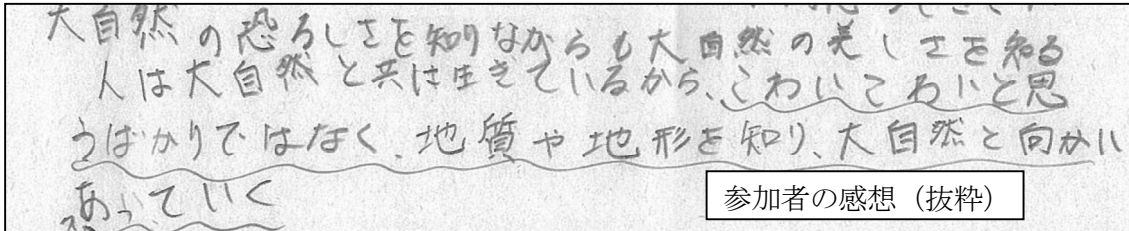 大自然の恐ろしさを知りながらも大自然の美しさを知る
人は大自然と共に生きているから、こわいこわいと思
うばかりではなく、地質や地形を知り、大自然と向かい
あっていく
参加者の感想（抜粋）